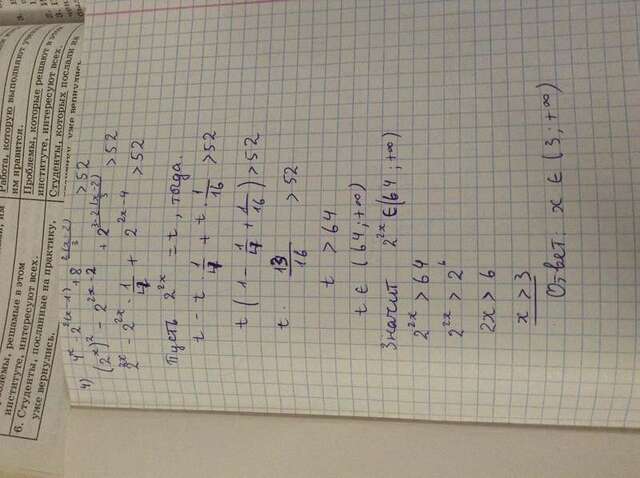 Работа, которую выполняют
им нравится.
Проблемы, которые решают в этом
институте, интересуют всех.
Студенты, которых послали на
уже вернулись.
решаемые в этом
институте, интересуют всех.
6. Студенты, посланные на практику,
уже вернулись.
4) 4^x - 2^{2(x-1)} + 8^{\frac{2(x-2)}{3}} > 52
(2^x)^2 - 2^{2x-2} + 2^{\frac{3·2(x-2)}{3}} > 52
2^{2x} - 2^{2x} · \frac{1}{4} + 2^{2x-4} > 52
Пусть 2^{2x} = t, тогда.
t - t · \frac{1}{4} + t · \frac{1}{16} > 52
t (1 - \frac{1}{4} + \frac{1}{16}) > 52
t · \frac{13}{16} > 52
t > 64
t ∈ (64; +∞)
Значит 2^{2x} ∈ (64; +∞)
2^{2x} > 64
2^{2x} > 2^6
2x > 6
x > 3
Ответ: x ∈ (3; +∞)